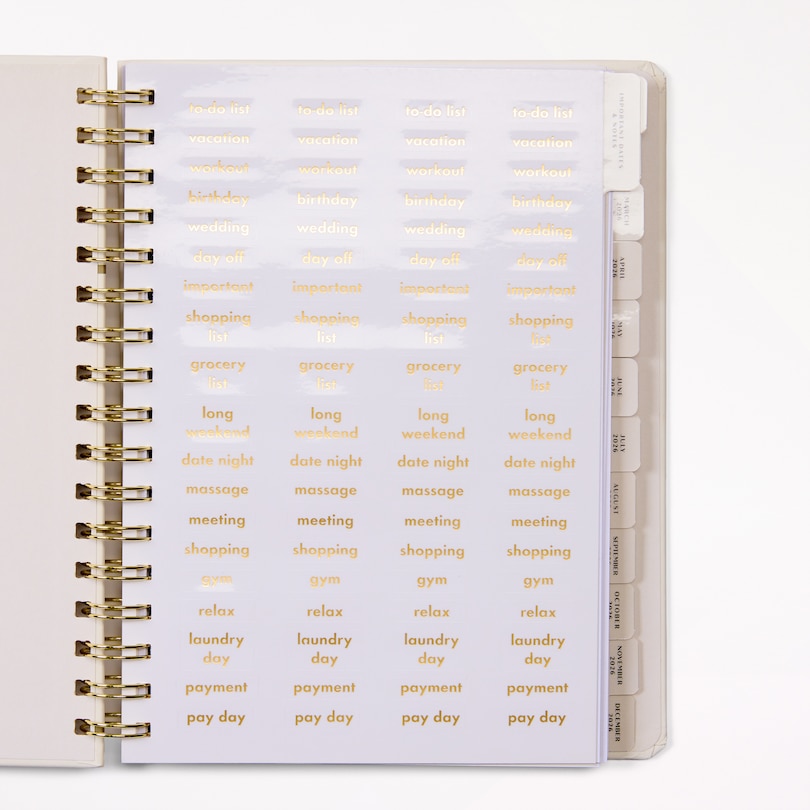 to-do list to-do list to-do list to-do list
vacation vacation vacation vacation
workout workout workout workout
birthday birthday birthday birthday
wedding wedding wedding wedding
day off day off day off day off
important important important important
shopping shopping shopping shopping
list list list list
grocery grocery grocery grocery
list list list list
long long long long
weekend weekend weekend weekend
date night date night date night date night
massage massage massage massage
meeting meeting meeting meeting
shopping shopping shopping shopping
gym gym gym gym
relax relax relax relax
laundry laundry laundry laundry
day day day day
payment payment payment payment
pay day pay day pay day pay day
IMPORTANT DATES
& NOTES
MARCH
2026
APRIL
2026
MAY
2026
JUNE
2026
JULY
2026
AUGUST
SEPTEMBER
OCTOBER
2026
NOVEMBER
2026
DECEMBER
2026